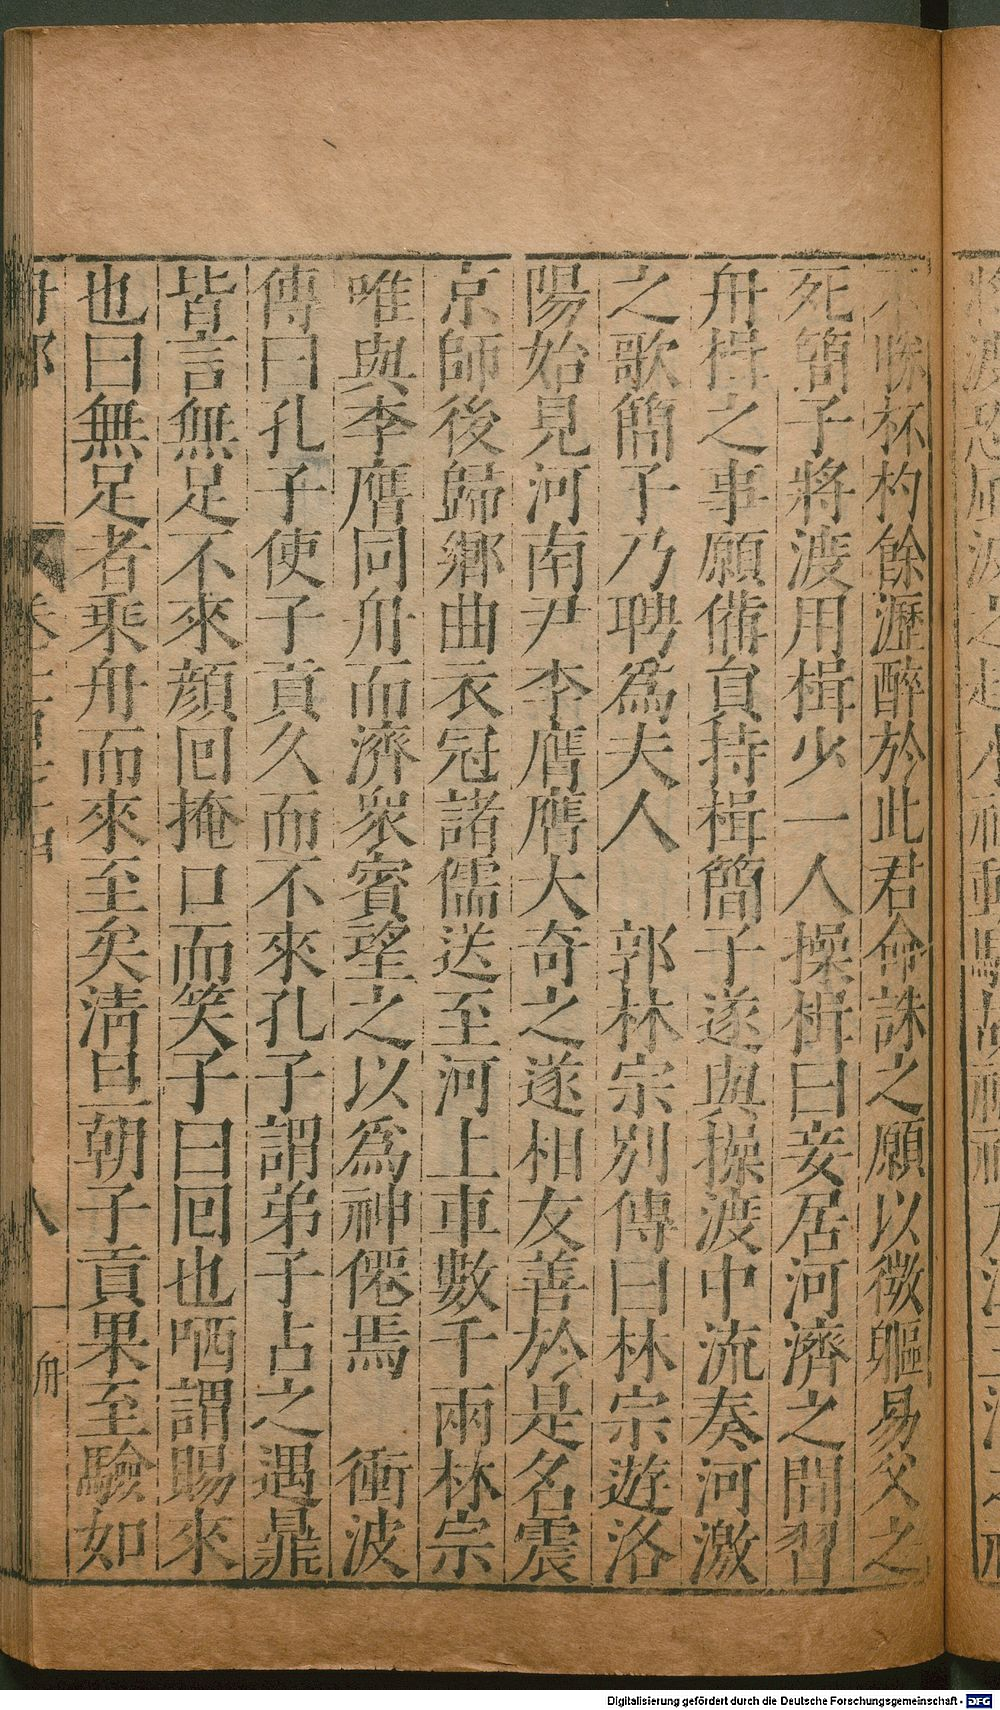 不勝杯杓餘瀝醉於此君命誅之願以微軀易父之
死簡子將渡用楫少一人操楫曰妾居河濟之間習
舟楫之事願備負持楫簡子遂與操渡中流奏河激
之歌簡子乃聘爲夫人　郭林宗別傳曰林宗遊洛
陽始見河南尹李膺膺大奇之遂相友善於是名震
京師後歸鄉曲衣冠諸儒送至河上車數千兩林宗
唯與李膺同舟而濟衆賓望之以爲神僊焉　衝波
傳曰孔子使子貢久而不來孔子謂弟子占之遇鼎
皆言無足不來顏回掩口而笑子曰回也哂謂賜來
也曰無足者乘舟而來至矣淸旦朝子貢果至驗如
舟部
八
舟
Digitalisierung gefördert durch die Deutsche Forschungsgemeinschaft - DFG